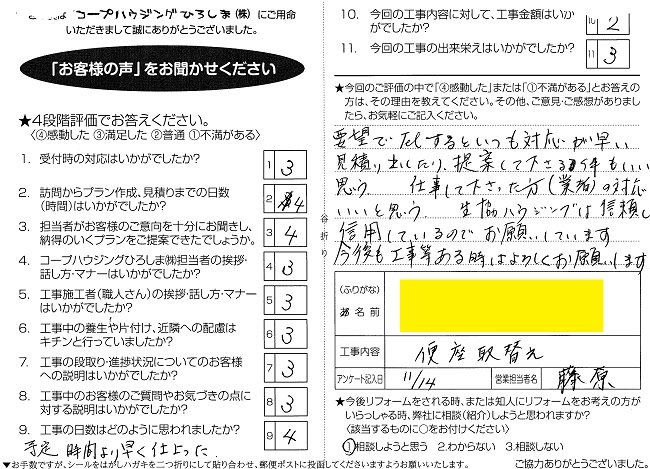 コープハウジングひろしま(株)にご用命
いただきまして誠にありがとうございました。
「お客様の声」をお聞かせください
★4段階評価でお答えください。
〈④感動した ③満足した ②普通 ①不満がある〉
1. 受付時の対応はいかがでしたか? 1 3
2. 訪問からプラン作成、見積りまでの日数
(時間)はいかがでしたか? 2 4
3. 担当者がお客様のご意向を十分にお聞きし、
納得のいくプランをご提案できたでしょうか。 3 4
4. コープハウジングひろしま㈱担当者の挨拶・
話し方・マナーはいかがでしたか? 4 3
5. 工事施工者(職人さん)の挨拶・話し方・マナー
はいかがでしたか? 5 3
6. 工事中の養生や片付け、近隣への配慮は
キチンと行っていましたか? 6 3
7. 工事の段取り・進捗状況についてのお客様
への説明はいかがでしたか? 7 3
8. 工事中のお客様のご質問やお気づきの点に
対する説明はいかがでしたか? 8 3
9. 工事の日数はどのように思われましたか? 9 4
予定時間より早く仕上った
▼お手数ですが、シールをはがしハガキを二つ折りにして貼り合わせ、郵便ポストに投函してくださいますようお願いいたします。
10. 今回の工事内容に対して、工事金額はいか
がでしたか? 10 2
11. 今回の工事の出来栄えはいかがでしたか? 11 3
★今回のご評価の中で「④感動した」または「①不満がある」とお答えの
方は、その理由を教えてください。その他、ご意見・ご感想がありまし
たら、お気軽にご記入ください。
要望でTELするといつも対応が早い
見積り出したり、提案して下さる件もいい
思う 仕事して下さった方(業者)の対応
いいと思う. 生協ハウジングは信頼し
信用しているのでお願いしています
今後も工事等ある時はよろしくお願いします
谷折り
(ふりがな)
お名前
工事内容 便座取替え
アンケート記入日 11/14 営業担当者名 藤原
★今後リフォームをされる時、または知人にリフォームをお考えの方が
いらっしゃる時、弊社に相談(紹介)しようと思われますか?
〈該当するものに○をお付けください〉
①相談しようと思う 2.わからない 3.相談しない
ご協力ありがとうございました。